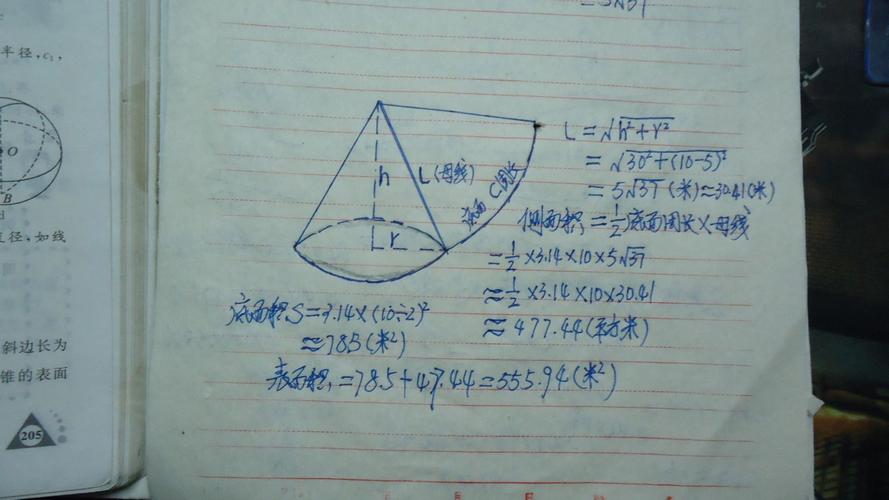 半径,c₁,
O
B
d
直径、如线
斜边长为
锥的表面
205
=5√37
h
L(母线)
r
底面C周长
L=√h²+r²
=√30²+(10-5)²
=5√37(米)≈30.41(米)
侧面积=½底面周长×母线
=½×3.14×10×5√37
≈½×3.14×10×30.41
≈477.44(平方米)
底面积S=3.14×(10÷2)²
≈78.5(米²)
表面积=78.5+47.44=555.94(米²)